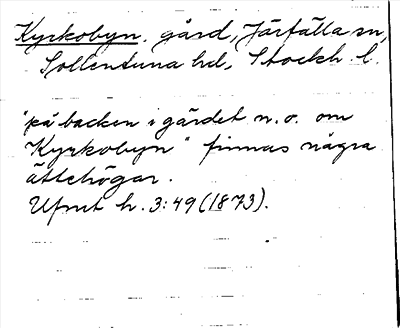 Kyrkobyn, gård, Järfälla sn,
Sollentuna hd, Stockh. l.
"på backen i gärdet n.o. om
Kyrkobyn" finnas några
ättehögar.
Ufmt h. 3:49 (1873).